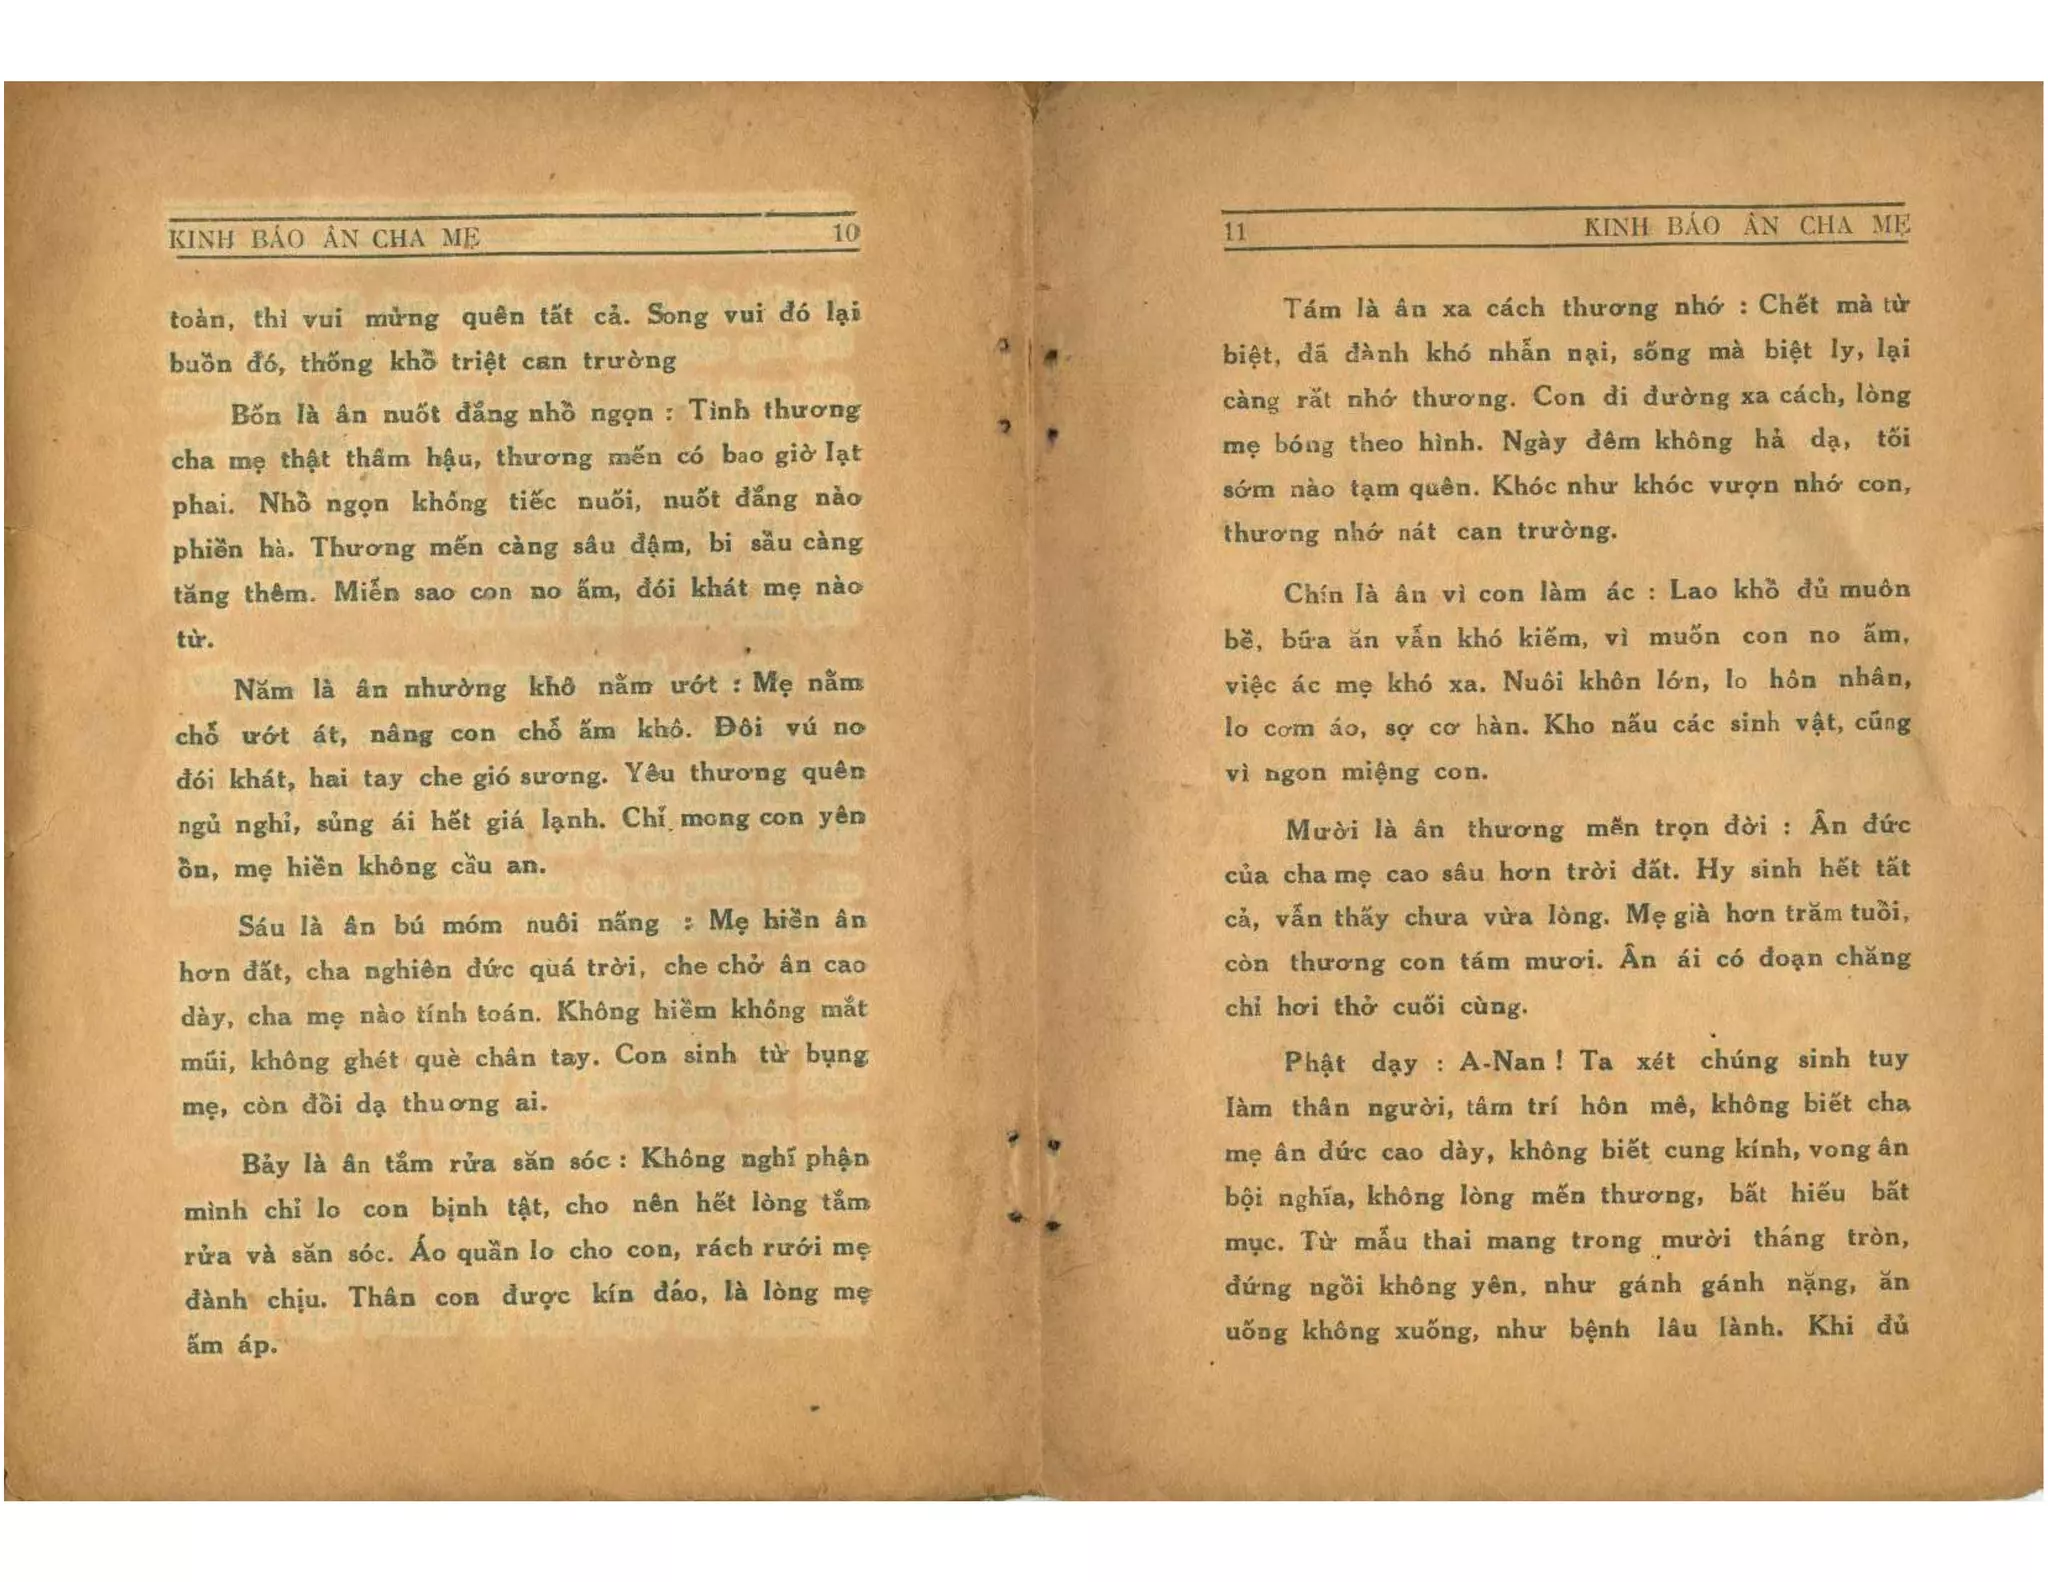 KINH BÁO ÂN CHA MẸ 10
toàn, thì vui mừng quên tất cả. Song vui đó lại
buồn đó, thống khổ triệt can trường
Bốn là ân nuốt đắng nhổ ngọn : Tình thương
cha mẹ thật thẩm hậu, thương mến có bao giờ lạt
phai. Nhổ ngọn không tiếc nuối, nuốt đắng nào
phiền hà. Thương mến càng sâu đậm, bi sầu càng
tăng thêm. Miễn sao con no ấm, đói khát mẹ nào
từ.
Năm là ân nhường khô nằm ướt : Mẹ nằm
chỗ ướt át, nâng con chỗ ấm khô. Đôi vú no
đói khát, hai tay che gió sương. Yêu thương quên
ngủ nghỉ, sủng ái hết giá lạnh. Chỉ mong con yên
ổn, mẹ hiền không cầu an.
Sáu là ân bú móm nuôi nấng : Mẹ hiền ân
hơn đất, cha nghiên đức quá trời, che chở ân cao
dày, cha mẹ nào tính toán. Không hiềm không mắt
mũi, không ghét què chân tay. Con sinh từ bụng
mẹ, còn đổi dạ thuơng ai.
Bảy là ân tắm rửa săn sóc : Không nghĩ phận
mình chỉ lo con bịnh tật, cho nên hết lòng tắm
rửa và săn sóc. Áo quần lo cho con, rách rưới mẹ
đành chịu. Thân con được kín đáo, là lòng mẹ
ấm áp.
11 KINH BÁO ÂN CHA MẸ
Tám là ân xa cách thương nhớ : Chết mà từ
biệt, đã đành khó nhẫn nại, sống mà biệt ly, lại
càng rất nhớ thương. Con đi đường xa cách, lòng
mẹ bóng theo hình. Ngày đêm không hả dạ, tối
sớm nào tạm quên. Khóc như khóc vượn nhớ con,
thương nhớ nát can trường.
Chín là ân vì con làm ác : Lao khổ đủ muôn
bề, bữa ăn vẫn khó kiếm, vì muốn con no ấm,
việc ác mẹ khó xa. Nuôi khôn lớn, lo hôn nhân,
lo cơm áo, sợ cơ hàn. Kho nấu các sinh vật, cũng
vì ngon miệng con.
Mười là ân thương mến trọn đời : Ân đức
của cha mẹ cao sâu hơn trời đất. Hy sinh hết tất
cả, vẫn thấy chưa vừa lòng. Mẹ già hơn trăm tuổi,
còn thương con tám mươi. Ân ái có đoạn chăng
chỉ hơi thở cuối cùng.
Phật dạy : A-Nan ! Ta xét chúng sinh tuy
làm thân người, tâm trí hôn mê, không biết cha
mẹ ân đức cao dày, không biết cung kính, vong ân
bội nghĩa, không lòng mến thương, bất hiếu bất
mục. Từ mẫu thai mang trong mười tháng tròn,
đứng ngồi không yên, như gánh gánh nặng, ăn
uống không xuống, như bệnh lâu lành. Khi đủ